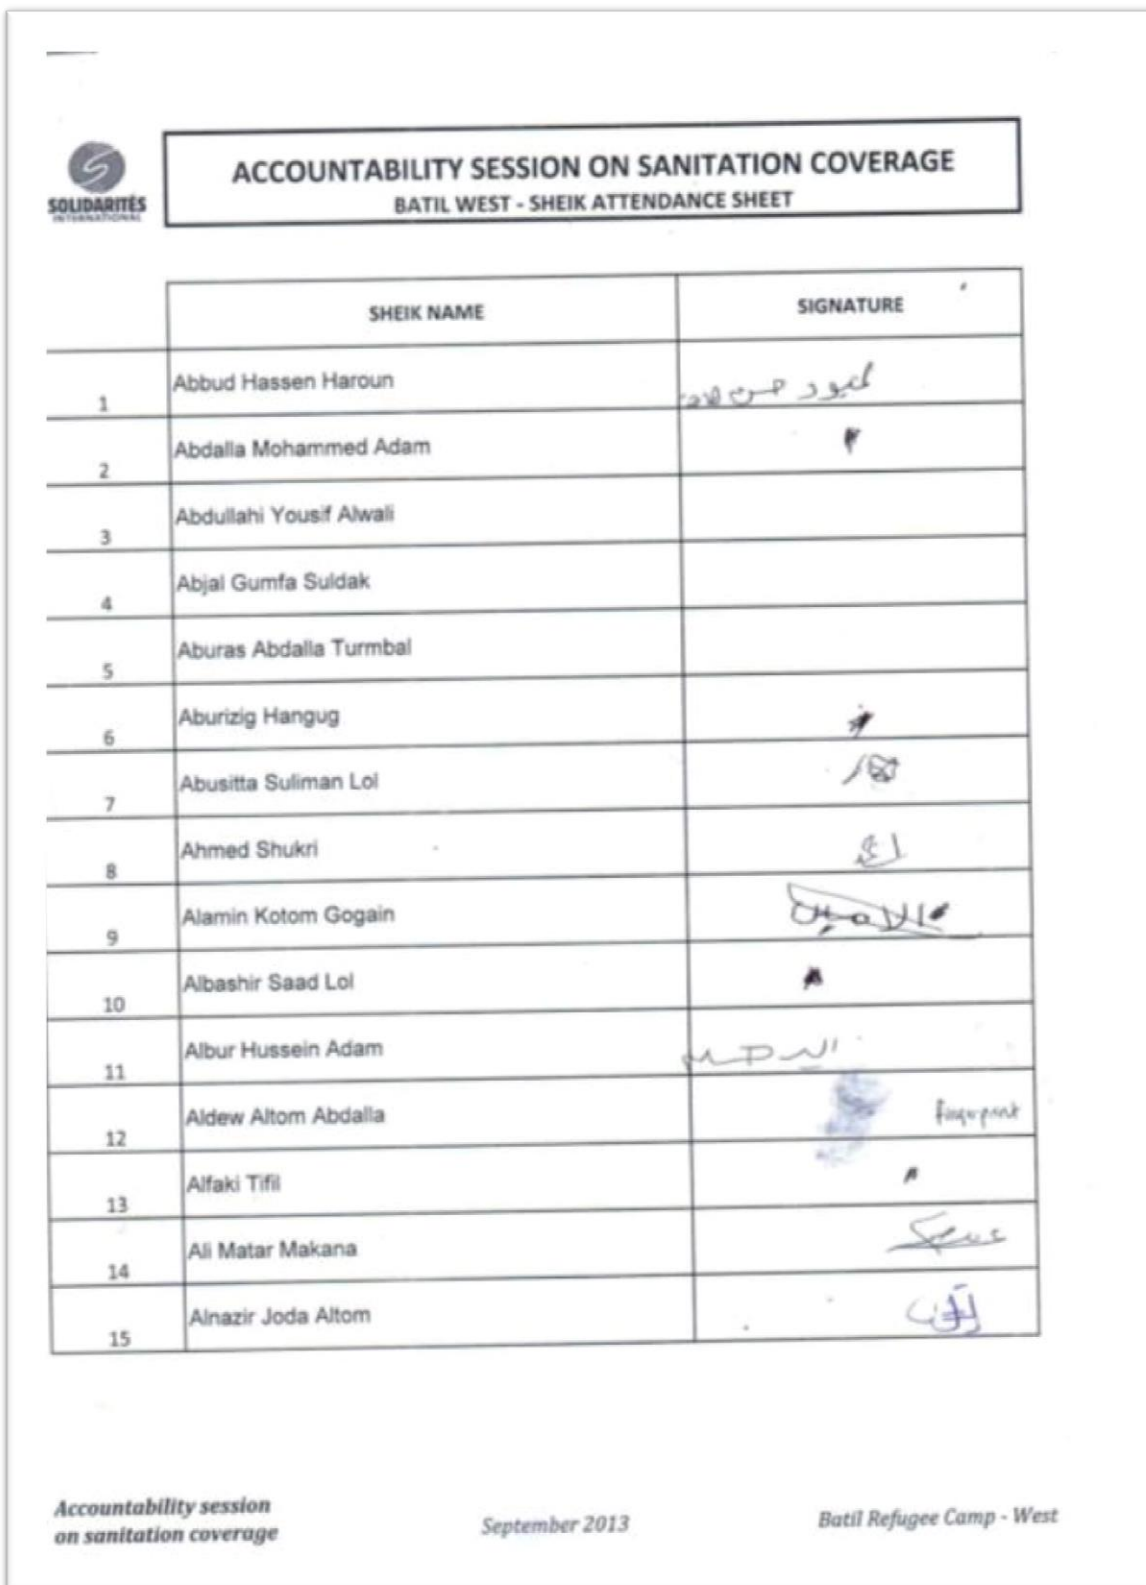 SOLIDARITÉS
INTERNATIONAL
ACCOUNTABILITY SESSION ON SANITATION COVERAGE
BATIL WEST - SHEIK ATTENDANCE SHEET
SHEIK NAME SIGNATURE
1 Abbud Hassen Haroun عبود حسن
2 Abdalla Mohammed Adam
3 Abdullahi Yousif Alwali
4 Abjal Gumfa Suldak
5 Aburas Abdalla Turmbal
6 Aburizig Hangug
7 Abusitta Suliman Lol
8 Ahmed Shukri
9 Alamin Kotom Gogain الامين
10 Albashir Saad Lol
11 Albur Hussein Adam
12 Aldew Altom Abdalla fingerprint
13 Alfaki Tifil
14 Ali Matar Makana
15 Alnazir Joda Altom
Accountability session
on sanitation coverage
September 2013
Batil Refugee Camp - West